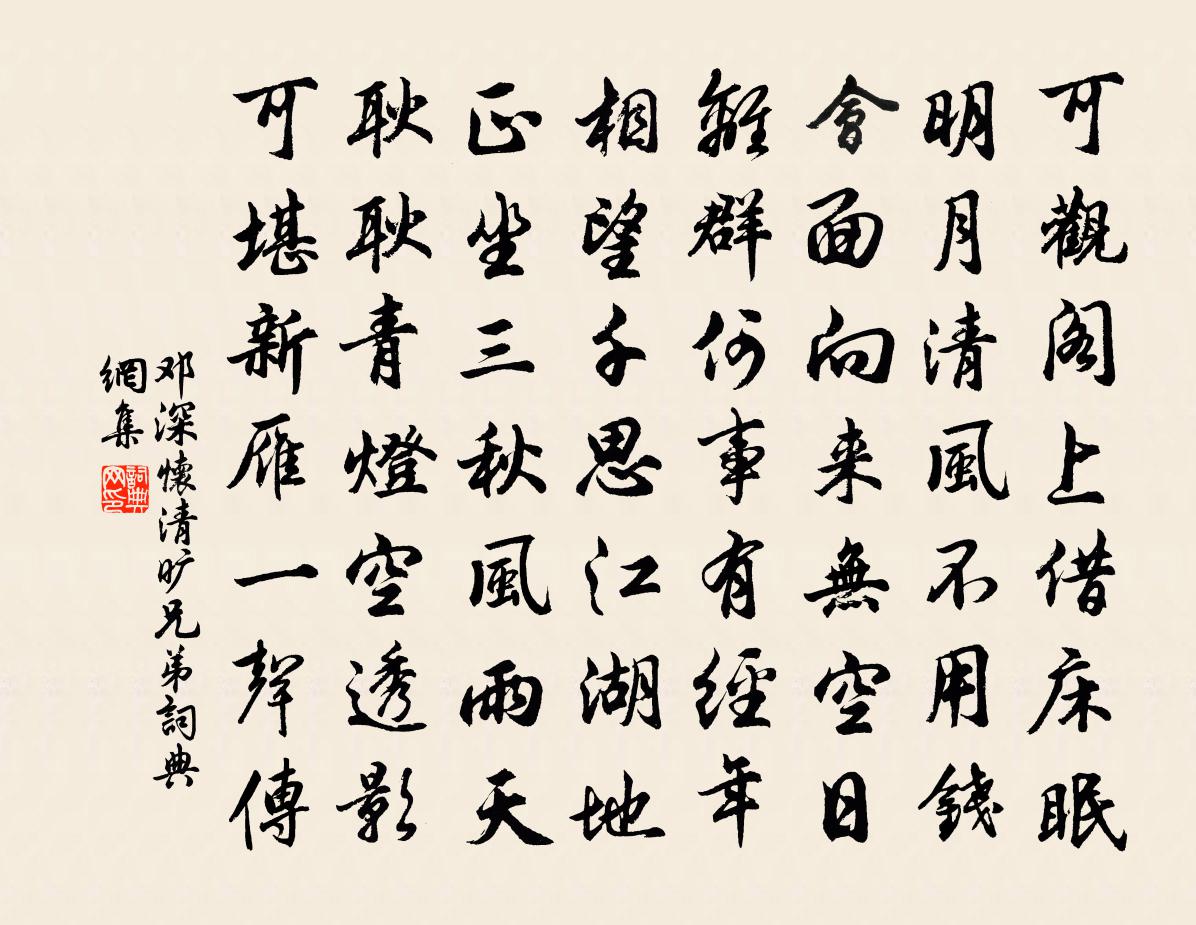 可觀阁上借床眠
明月清風不用錢
會面向来無空日
離群何事有經年
相望千思江湖地
正坐三秋風雨天
耿耿青燈空透影
可堪新雁一聲傳
邓深懷清旷兄弟詞典
網集
詞典
网印